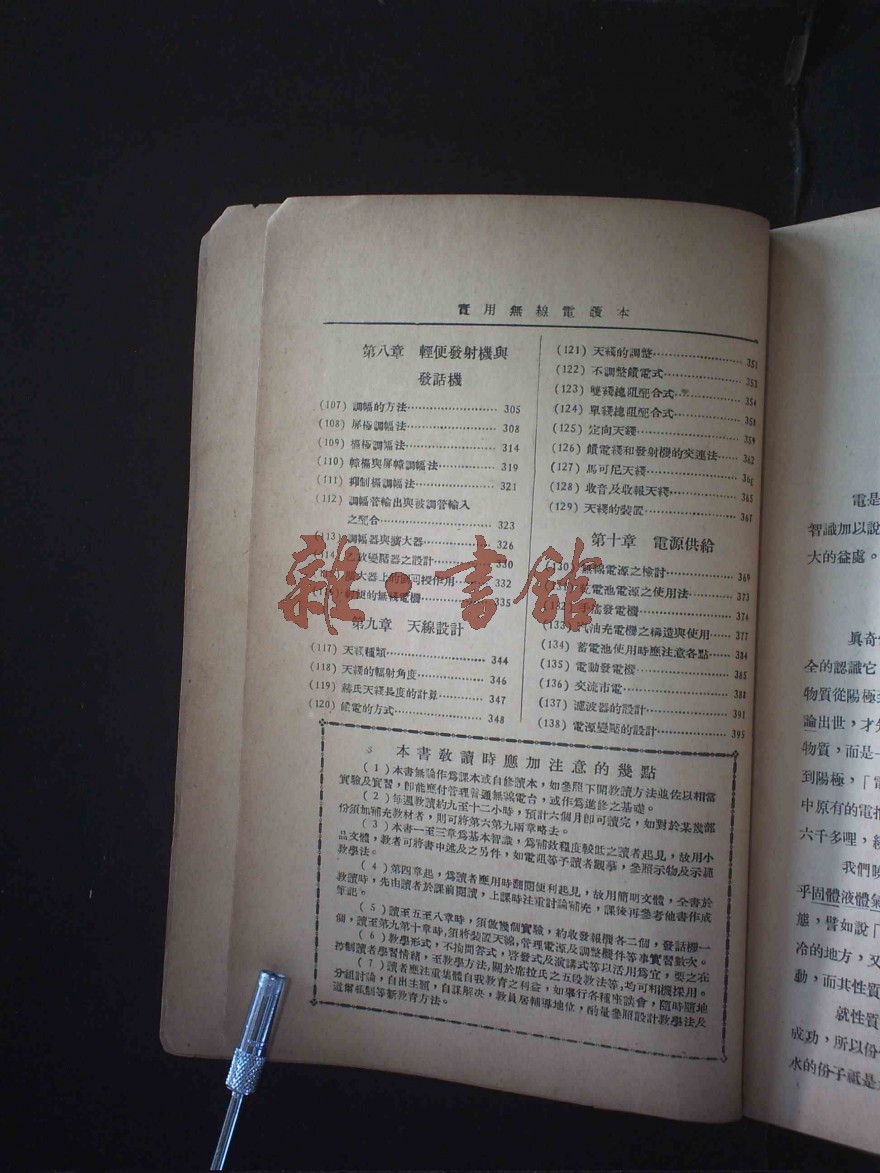 實用無線電讀本
第八章 輕便發射機與
發話機
(107) 調幅的方法 305
(108) 屏極調幅法 308
(109) 柵極調幅法 314
(110) 幛柵與屏幛調幅法 319
(111) 抑制柵調幅法 321
(112) 調幅管輸出與被調管輸入
之配合 323
(113) 調幅器與擴大器 326
之設計 330
332
便的無綫電機 335
第九章 天線設計
(117) 天綫種類 344
(118) 天綫的輻射角度 346
(119) 赫氏天綫長度的計算 347
(120) 饋電的方式 348
(121) 天綫的調整 351
(122) 不調整饋電式 353
(123) 雙綫總阻配合式 354
(124) 單綫總阻配合式 358
(125) 定向天綫 359
(126) 饋電綫和發射機的交連法 362
(127) 馬可尼天綫
(128) 收音及收報天綫 365
(129) 天綫的裝置 367
第十章 電源供給
(130) 無線電源之檢討 369
乾電池電源之使用法 373
手搖發電機 374
(133) 汽油充電機之構造與使用 377
(134) 蓄電池使用時應注意各點 384
(135) 電動發電機 385
(136) 交流市電 388
(137) 濾波器的設計 391
(138) 電源變壓的設計 395
本書教讀時應加注意的幾點
(1)本書無論作爲課本或自修讀本，如參照下開教讀方法並佐以相當
實驗及實習，即能應付管理普通無綫電台，或作爲進修之基礎。
(2)每週教讀約九至十二小時，預計六個月即可讀完，如對於某幾部
份須加補充教材者，則可將第六第九兩章略去。
(3)本書一至三章爲基本智識，爲補救程度較低之讀者起見，故用小
品文體，教者可將書中述及之另件，如電阻等予讀者觀摹，參照示物及示範
教學法。
(4)第四章起，爲讀者應用時翻閱便利起見，故用簡明文體，全書於
教讀時，先由讀者於課前閱讀，上課時注重討論補充，課後再參考他書作成
筆記。
(5)讀至五至八章時，須做幾個實驗，約收發報機各二個，發話機一
個，讀至第九第十章時，須將裝置天綫，管理電源及調整機件等事實習數次。
(6)教學形式，不拘問答式，啓發式及演講式等以活用爲宜，要之在
控制讀者學習情緒，至教學方法，關於席拉氏之五段教法等，均可相機採用。
(7)讀者應注重集體自我教育之利益，如舉行各種座談會，隨時隨地
分組討論，自出主題，自謀解決，教員居輔導地位，酌量參照設計教學法及
道爾制等新教育方法。
雜·書館
電是
智識加以說
大的益處。
真奇
全的認識它
物質從陽極
論出世，才
物質，而是
到陽極，「電
中原有的電
六千多哩，
我們
乎固體液體
態，譬如說「
冷的地方，又
動，而其性質
就性質
成功，所以份
水的份子祇是